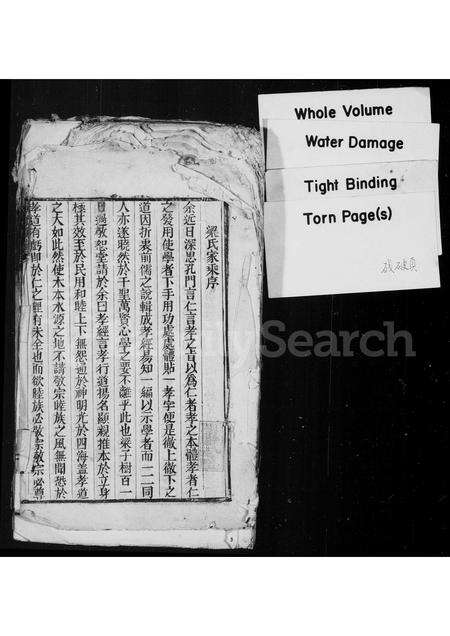 Whole Volume
Water Damage
Tight Binding
Torn Page(s)
殘破頁
梁氏家乘序
余近日深思孔門言仁言孝之旨以為仁者孝之本體孝者仁
之發用使學者下手用功處處體貼一孝字便是徹上徹下之
道因折衷前儒之說輯成孝經易知一編以示學者而一二同
人亦遂曉然於千聖萬賢心學之要不離乎此也梁子樹百一
日過敬恕堂請於余曰孝經言孝行道揚名顯親推本於立身
極其效至於民用和睦上下無怨通於神明光於四海蓋孝道
之大如此然使木本水源之地不講敬宗睦族之風無聞恐於
孝道有虧即於仁之理有未全也而欲睦族必敬宗敬宗必尊
Search